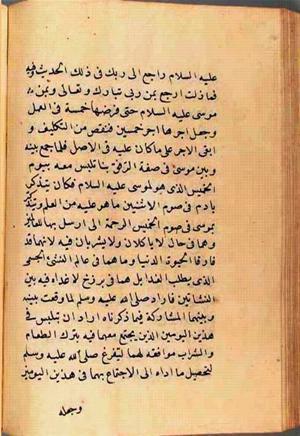 عليه السلام راجع الى ربك فى ذلك الحديث وفيه
فما زلت ارجع بين ربى تبارك وتعالى وبين
موسى عليه السلام حتى فرضها خمسة فى العمل
وجعل اجرها اجر خمسين فنقص من التكليف و
ابقى الاجر على ما كان عليه فى الاصل فلما جمع بينه
وبين موسى فى صفة الرفق بنا تلبس معه بيوم
الخميس الذى هو لموسى عليه السلام فكان يتذكر
بادم فى صوم الاثنين ما هو عليه من العلم ويتذكر
بموسى فى صوم الخميس الرحمة التى ارسل بها للعالمين
وهما فى حال لا ياكلان ولا يشربان فيه لانهما قد
فارقا الحيوة الدنيا وهما فى عالم النشئ الجسمى
الذى يطلب الغذا بل هما فى برزخ لا غذاء فيه بين
النشأتين فاراد صلى الله عليه وسلم لما وقعت بينه
وبينهما المشاركة فيما ذكرناه اراد ان يتلبس فى
هذين اليومين الذين يجتمع معهما فيه بترك الطعام
والشراب موافقة لهما ليتفرغ صلى الله عليه وسلم
لتحصيل ما اداه الى الاجتماع بهما فى هذين اليومين
وجعله